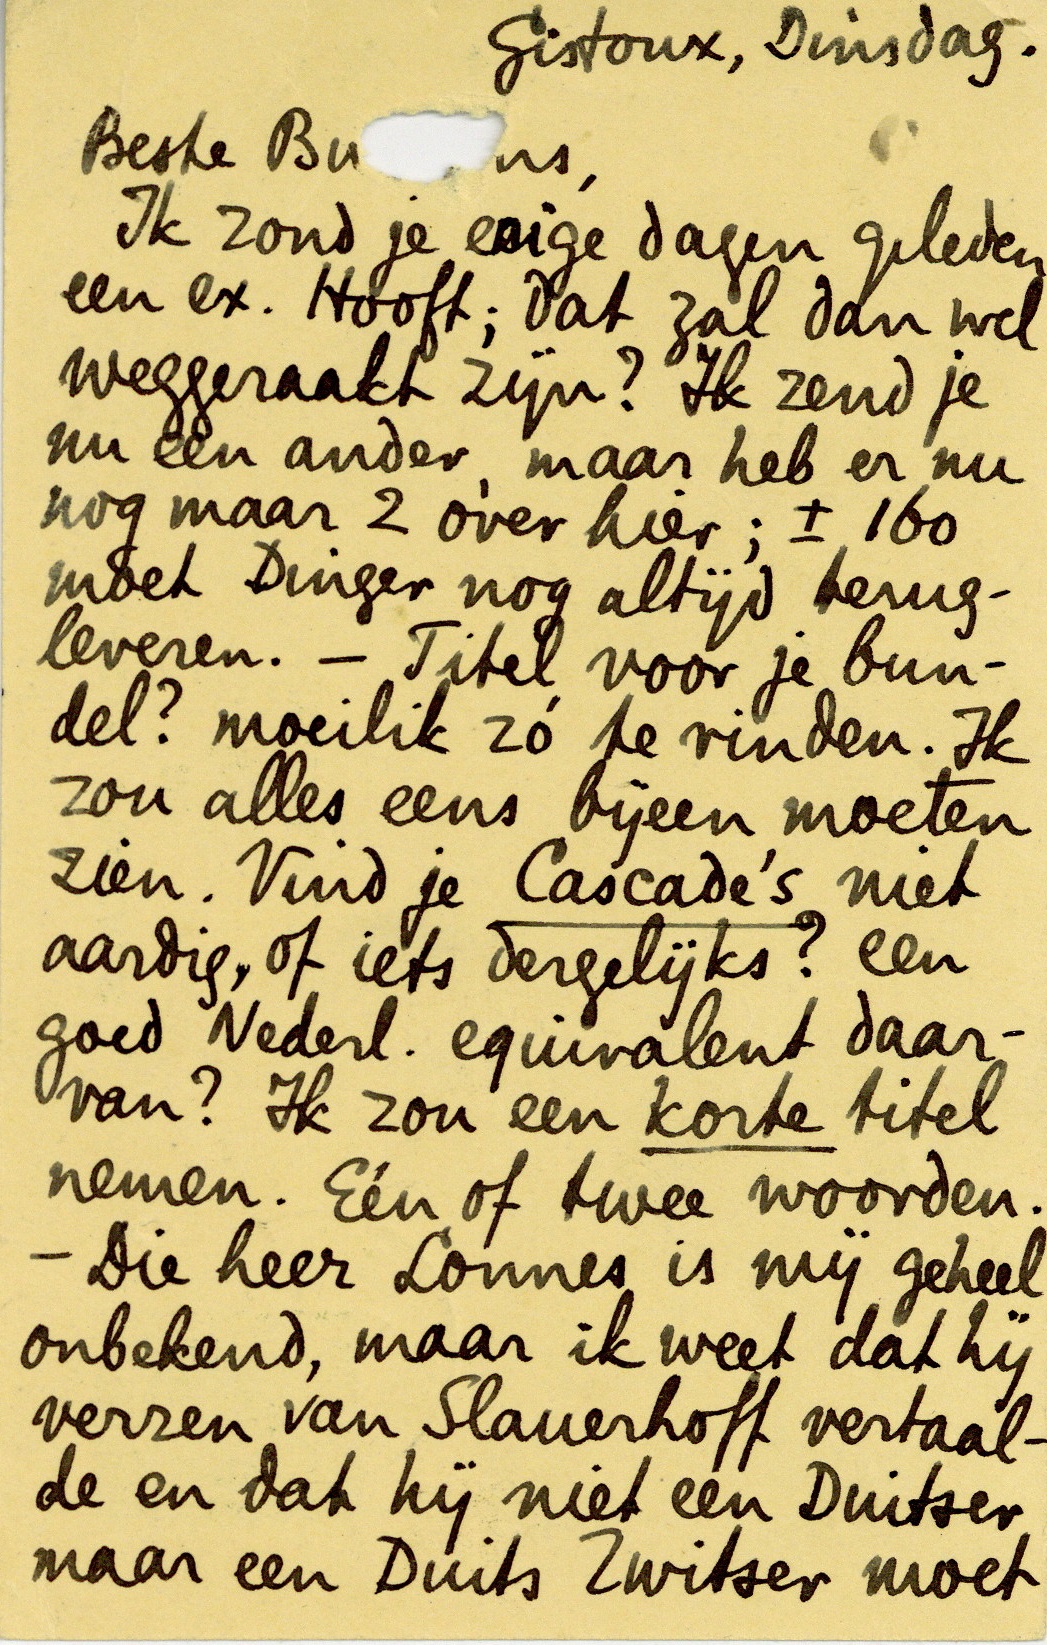 Gistoux, Dinsdag.
Beste Bu ns,
Ik zond je enige dagen geleden
een ex. Hooft; dat zal dan wel
weggeraakt zijn? Ik zend je
nu een ander, maar heb er nu
nog maar 2 over hier; ± 160
moet Dinger nog altijd terug-
leveren. – Titel voor je bun-
del? moeilik zó te vinden. Ik
zou alles eens bijeen moeten
zien. Vind je Cascade's niet
aardig, of iets dergelijks? een
goed Nederl. equivalent daar-
van? Ik zou een korte titel
nemen. Eén of twee woorden.
– Die heer Lonnes is mij geheel
onbekend, maar ik weet dat hij
verzen van Slauerhoff vertaal-
de en dat hij niet een Duitser
maar een Duits Zwitser moet